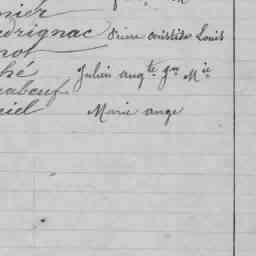 nier
drignac Prime aristide Louis
not
hé Julien aug^te J^n M^ie
aboeuf
ciel Marie ange